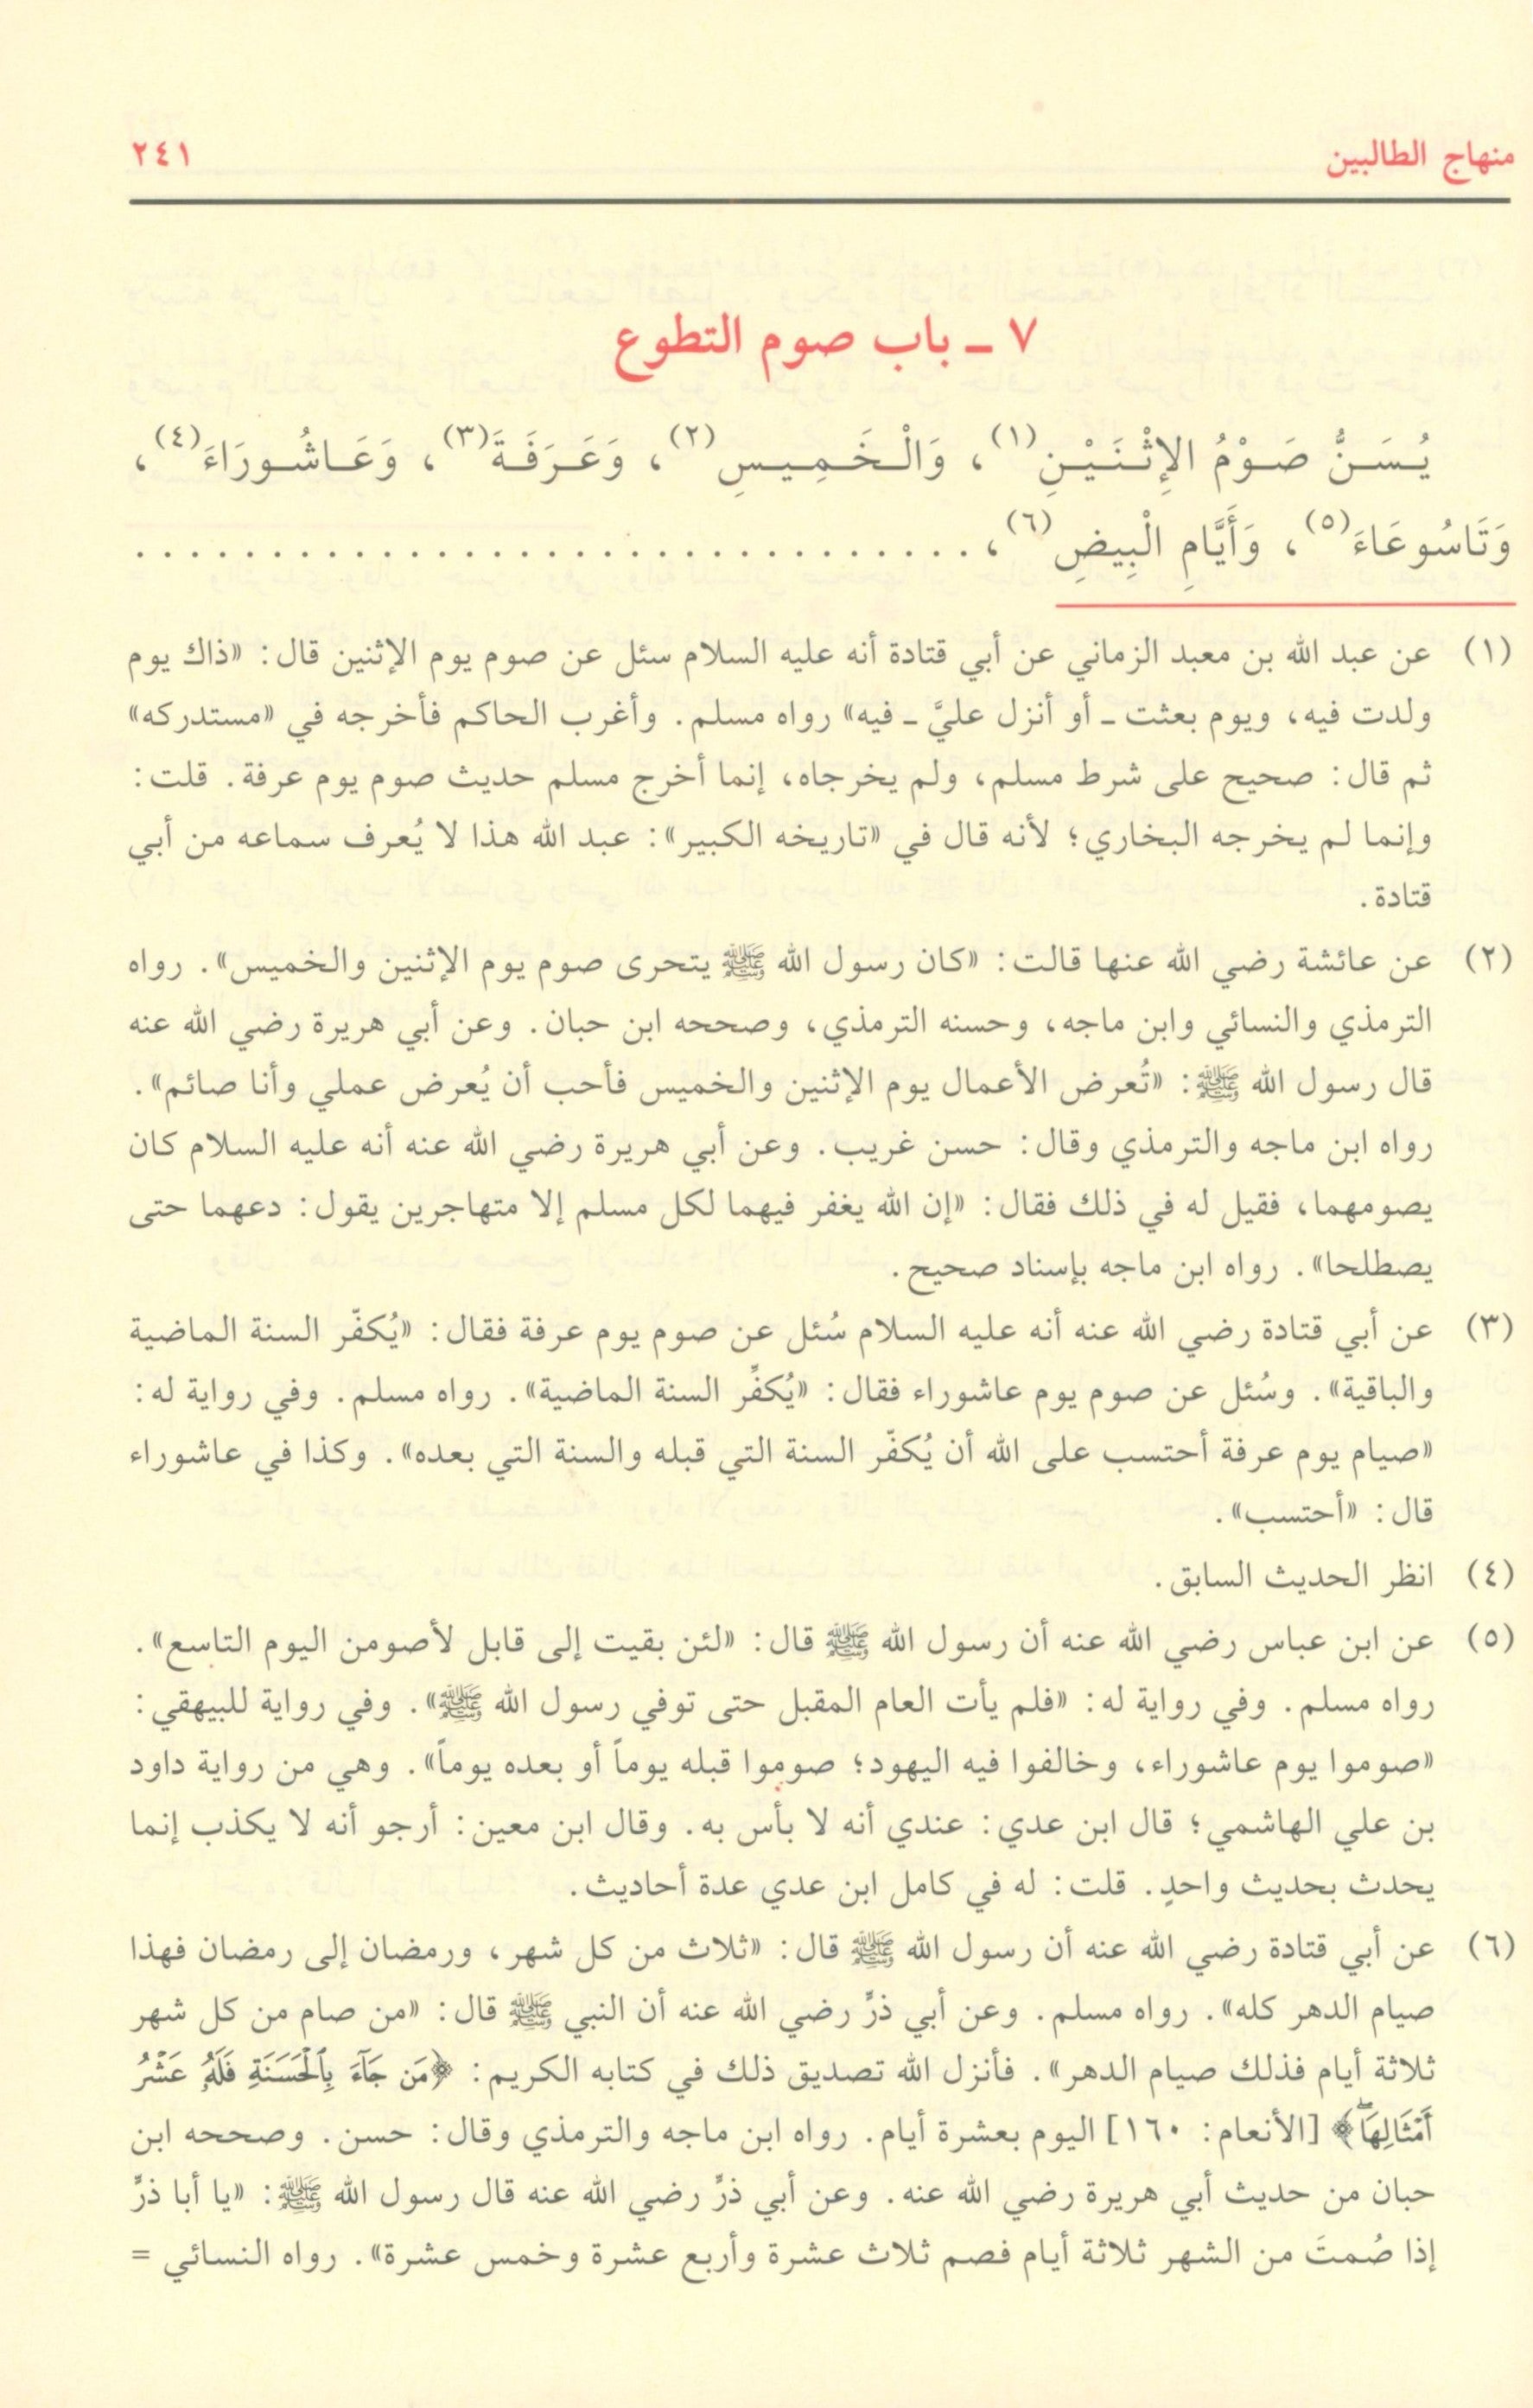 منهاج الطالبين ٢٤١
٧ ـ باب صوم التطوع
يُسَنُّ صَوْمُ الإِثْنَيْنِ(١)، وَالْخَمِيسِ(٢)، وَعَرَفَةَ(٣)، وَعَاشُورَاءَ(٤)،
وَتَاسُوعَاءَ(٥)، وَأَيَّامِ الْبِيضِ(٦)، . . . . . . . . . . . . . . . . . . . . . . . . . . . . . . . .
(١) عن عبد الله بن معبد الزماني عن أبي قتادة أنه عليه السلام سئل عن صوم يوم الإثنين قال: «ذاك يوم
ولدت فيه، ويوم بعثت ـ أو أنزل عليَّ ـ فيه» رواه مسلم. وأغرب الحاكم فأخرجه في «مستدركه»
ثم قال: صحيح على شرط مسلم، ولم يخرجاه، إنما أخرج مسلم حديث صوم يوم عرفة. قلت:
وإنما لم يخرجه البخاري؛ لأنه قال في «تاريخه الكبير»: عبد الله هذا لا يُعرف سماعه من أبي
قتادة.
(٢) عن عائشة رضي الله عنها قالت: «كان رسول الله ﷺ يتحرى صوم يوم الإثنين والخميس». رواه
الترمذي والنسائي وابن ماجه، وحسنه الترمذي، وصححه ابن حبان. وعن أبي هريرة رضي الله عنه
قال رسول الله ﷺ: «تُعرض الأعمال يوم الإثنين والخميس فأحب أن يُعرض عملي وأنا صائم».
رواه ابن ماجه والترمذي وقال: حسن غريب. وعن أبي هريرة رضي الله عنه أنه عليه السلام كان
يصومهما، فقيل له في ذلك فقال: «إن الله يغفر فيهما لكل مسلم إلا متهاجرين يقول: دعهما حتى
يصطلحا». رواه ابن ماجه بإسناد صحيح.
(٣) عن أبي قتادة رضي الله عنه أنه عليه السلام سُئل عن صوم يوم عرفة فقال: «يُكفّر السنة الماضية
والباقية». وسُئل عن صوم يوم عاشوراء فقال: «يُكفِّر السنة الماضية». رواه مسلم. وفي رواية له:
«صيام يوم عرفة أحتسب على الله أن يُكفّر السنة التي قبله والسنة التي بعده». وكذا في عاشوراء
قال: «أحتسب».
(٤) انظر الحديث السابق.
(٥) عن ابن عباس رضي الله عنه أن رسول الله ﷺ قال: «لئن بقيت إلى قابل لأصومن اليوم التاسع».
رواه مسلم. وفي رواية له: «فلم يأت العام المقبل حتى توفي رسول الله ﷺ». وفي رواية للبيهقي:
«صوموا يوم عاشوراء، وخالفوا فيه اليهود؛ صوموا قبله يوماً أو بعده يوماً». وهي من رواية داود
بن علي الهاشمي؛ قال ابن عدي: عندي أنه لا بأس به. وقال ابن معين: أرجو أنه لا يكذب إنما
يحدث بحديث واحدٍ. قلت: له في كامل ابن عدي عدة أحاديث.
(٦) عن أبي قتادة رضي الله عنه أن رسول الله ﷺ قال: «ثلاث من كل شهر، ورمضان إلى رمضان فهذا
صيام الدهر كله». رواه مسلم. وعن أبي ذرٍّ رضي الله عنه أن النبي ﷺ قال: «من صام من كل شهر
ثلاثة أيام فذلك صيام الدهر». فأنزل الله تصديق ذلك في كتابه الكريم: ﴿مَن جَآءَ بِٱلْحَسَنَةِ فَلَهُۥ عَشْرُ
أَمْثَالِهَاۖ﴾ [الأنعام: ١٦٠] اليوم بعشرة أيام. رواه ابن ماجه والترمذي وقال: حسن. وصححه ابن
حبان من حديث أبي هريرة رضي الله عنه. وعن أبي ذرٍّ رضي الله عنه قال رسول الله ﷺ: «يا أبا ذرٍّ
إذا صُمتَ من الشهر ثلاثة أيام فصم ثلاث عشرة وأربع عشرة وخمس عشرة». رواه النسائي =